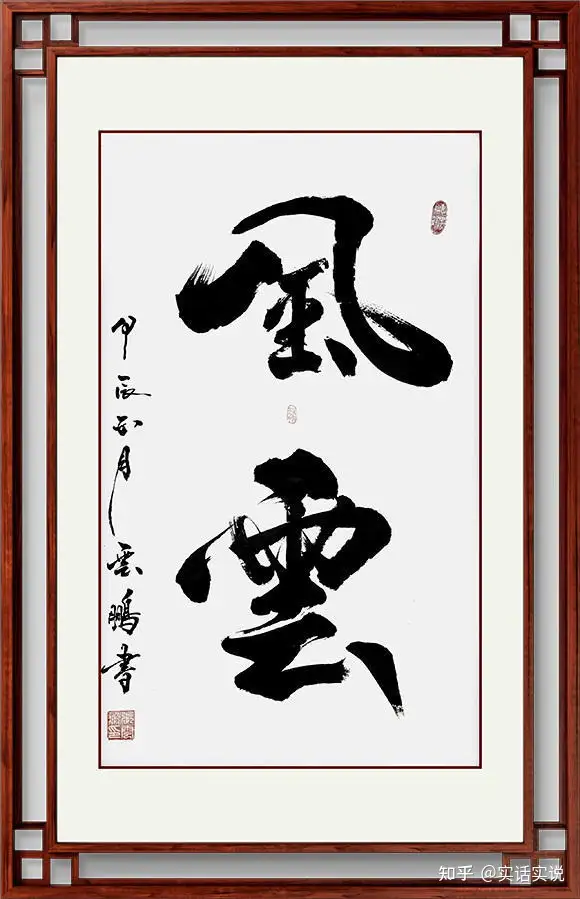 風雲
甲辰正月雲鵬書
知乎 @实话实说